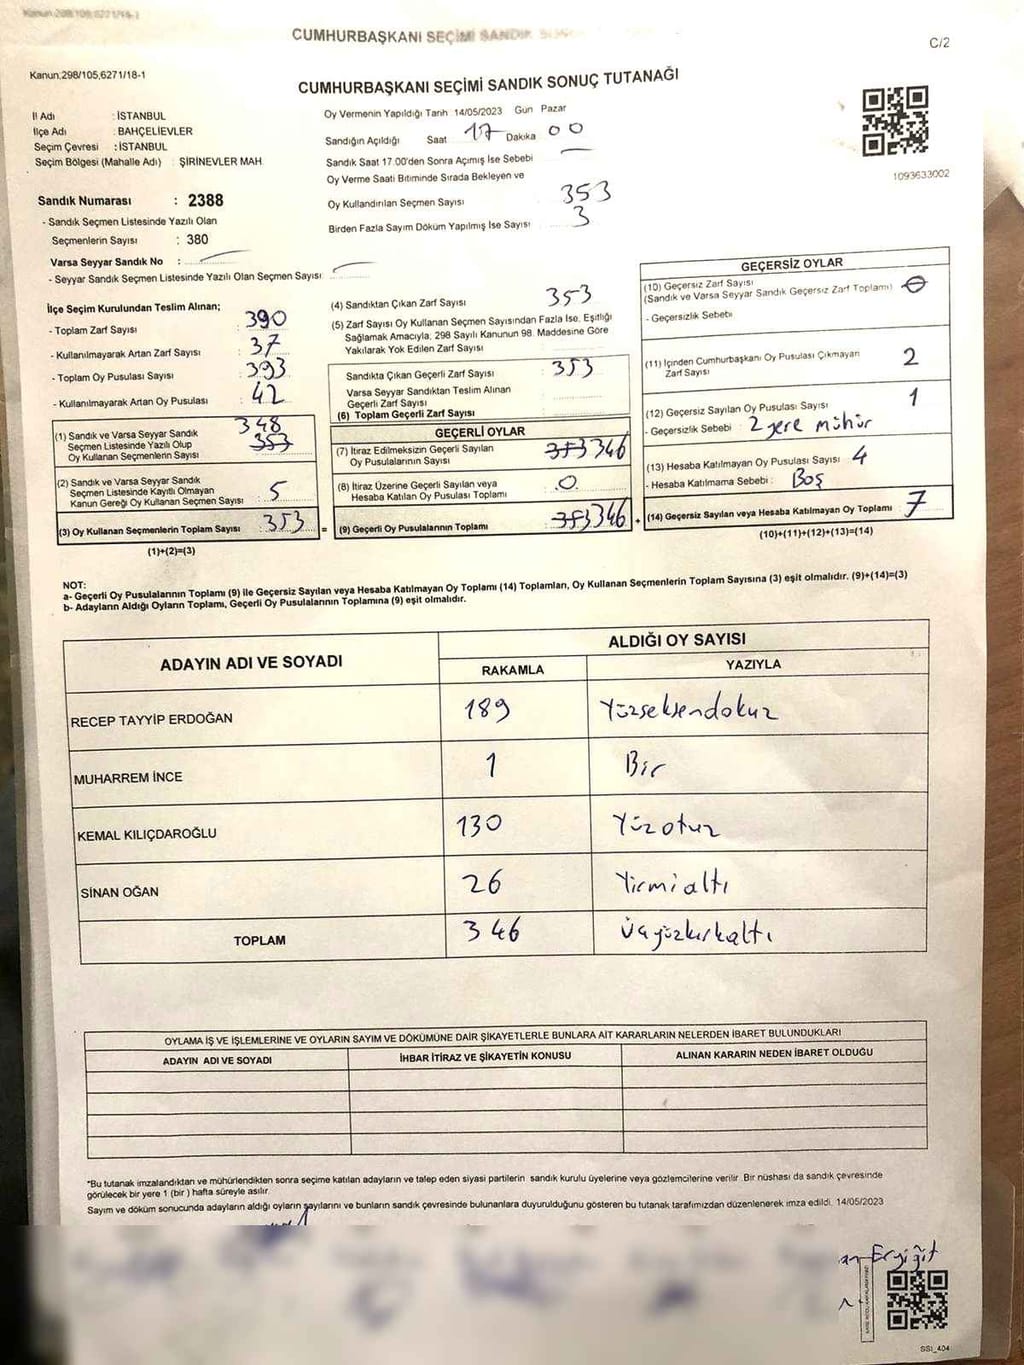 Kanun,298/105,6271/18-1
CUMHURBAŞKANI SEÇİMİ SANDIK
C/2
Kanun,298/105,6271/18-1
CUMHURBAŞKANI SEÇİMİ SANDIK SONUÇ TUTANAĞI
İl Adı : İSTANBUL
İlçe Adı : BAHÇELİEVLER
Seçim Çevresi : İSTANBUL
Seçim Bölgesi (Mahalle Adı) : ŞİRİNEVLER MAH.
Sandık Numarası : 2388
- Sandık Seçmen Listesinde Yazılı Olan
Seçmenlerin Sayısı : 380
Varsa Seyyar Sandık No :
- Seyyar Sandık Seçmen Listesinde Yazılı Olan Seçmen Sayısı:
Oy Vermenin Yapıldığı Tarih 14/05/2023 Gün Pazar
Sandığın Açıldığı Saat 17 Dakika 00
Sandık Saat 17.00'den Sonra Açımış İse Sebebi
Oy Verme Saati Bitiminde Sırada Bekleyen ve
Oy Kullandırılan Seçmen Sayısı 353
Birden Fazla Sayım Döküm Yapılmış İse Sayısı 3
1093633002
İlçe Seçim Kurulundan Teslim Alınan;
- Toplam Zarf Sayısı : 390
- Kullanılmayarak Artan Zarf Sayısı : 37
- Toplam Oy Pusulası Sayısı : 393
- Kullanılmayarak Artan Oy Pusulası : 42
(1) Sandık ve Varsa Seyyar Sandık 348
Seçmen Listesinde Yazılı Olup : 353
Oy Kullanan Seçmenlerin Sayısı
(2) Sandık ve Varsa Seyyar Sandık
Seçmen Listesinde Kayıtlı Olmayan : 5
Kanun Gereği Oy Kullanan Seçmen Sayısı
(3) Oy Kullanan Seçmenlerin Toplam Sayısı : 353 =
(1)+(2)=(3)
(4) Sandıktan Çıkan Zarf Sayısı 353
(5) Zarf Sayısı Oy Kullanan Seçmen Sayısından Fazla İse, Eşitliği
Sağlamak Amacıyla; 298 Sayılı Kanunun 98. Maddesine Göre
Yakılarak Yok Edilen Zarf Sayısı
Sandıkta Çıkan Geçerli Zarf Sayısı : 353
Varsa Seyyar Sandıktan Teslim Alınan
Geçerli Zarf Sayısı
(6) Toplam Geçerli Zarf Sayısı
GEÇERLİ OYLAR
(7) İtiraz Edilmeksizin Geçerli Sayılan 353 346
Oy Pusulalarının Sayısı
(8) İtiraz Üzerine Geçerli Sayılan veya : 0
Hesaba Katılan Oy Pusulası Toplamı
(9) Geçerli Oy Pusulalarının Toplamı : 353 346 +
GEÇERSİZ OYLAR
(10) Geçersiz Zarf Sayısı
(Sandık ve Varsa Seyyar Sandık Geçersiz Zarf Toplamı) : 0
- Geçersizlik Sebebi
(11) İçinden Cumhurbaşkanı Oy Pusulası Çıkmayan 2
Zarf Sayısı
(12) Geçersiz Sayılan Oy Pusulası Sayısı : 1
- Geçersizlik Sebebi : 2 yere mühür
(13) Hesaba Katılmayan Oy Pusulası Sayısı : 4
- Hesaba Katılmama Sebebi : Boş
(14) Geçersiz Sayılan veya Hesaba Katılmayan Oy Toplamı : 7
(10)+(11)+(12)+(13)=(14)
NOT:
a- Geçerli Oy Pusulalarının Toplamı (9) ile Geçersiz Sayılan veya Hesaba Katılmayan Oy Toplamı (14) Toplamları, Oy Kullanan Seçmenlerin Toplam Sayısına (3) eşit olmalıdır. (9)+(14)=(3)
b- Adayların Aldığı Oyların Toplamı, Geçerli Oy Pusulalarının Toplamına (9) eşit olmalıdır.
ADAYIN ADI VE SOYADI ALDIĞI OY SAYISI
RAKAMLA YAZIYLA
RECEP TAYYİP ERDOĞAN 189 Yüzseksendokuz
MUHARREM İNCE 1 Bir
KEMAL KILIÇDAROĞLU 130 Yüzotuz
SİNAN OĞAN 26 Yirmialtı
TOPLAM 346 üçyüzkırkaltı
OYLAMA İŞ VE İŞLEMLERİNE VE OYLARIN SAYIM VE DÖKÜMÜNE DAİR ŞİKAYETLERLE BUNLARA AİT KARARLARIN NELERDEN İBARET BULUNDUKLARI
ADAYIN ADI VE SOYADI İHBAR İTİRAZ VE ŞİKAYETİN KONUSU ALINAN KARARIN NEDEN İBARET OLDUĞU
*Bu tutanak imzalandıktan ve mühürlendikten sonra seçime katılan adayların ve talep eden siyasi partilerin sandık kurulu üyelerine veya gözlemcilerine verilir. Bir nüshası da sandık çevresinde
görülecek bir yere 1 (bir) hafta süreyle asılır.
Sayım ve döküm sonucunda adayların aldığı oyların sayılarını ve bunların sandık çevresinde bulunanlara duyurulduğunu gösteren bu tutanak tarafımızdan düzenlenerek imza edildi. 14/05/2023
Eryiğit
SSİ_404